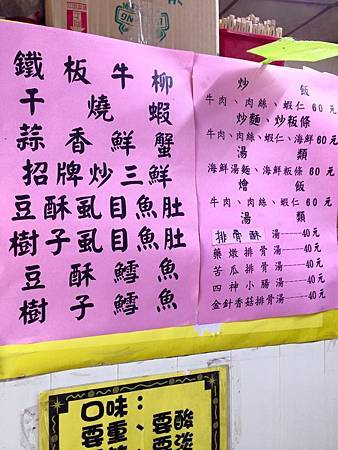 鐵板牛柳
干燒蝦
蒜香鮮蟹
招牌炒三鮮
豆酥虱目魚肚
樹子虱目魚肚
豆酥鱈魚
樹子鱈魚
炒飯
牛肉、肉絲、蝦仁 60元
炒麵、炒板條
牛肉、肉絲、蝦仁、海鮮 60元
湯類
海鮮湯麵、海鮮板條 60元
燴飯
牛肉、肉絲、蝦仁 60元
湯類
排骨酥湯----40元
藥燉排骨湯----40元
苦瓜排骨湯----40元
四神小腸湯----40元
金針香菇排骨湯----40元
口味:、酸
要重、要淡